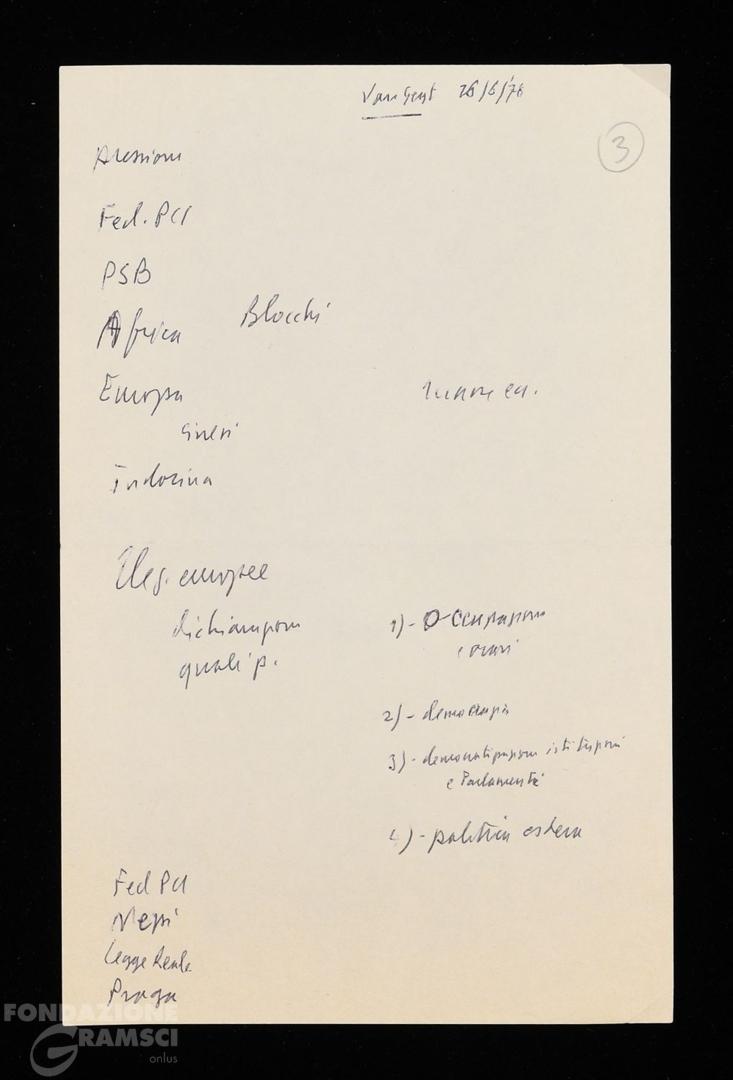 Van Geyt 26/6/78
3
Adesione
Fed. PCI
PSB
Africa Blocchi
Europa
sinistri
Indocina
Eleg. europee
dichiarazione
quali p.
1) - Occupazione
orari
2) - democrazia
3) - democratizzazione istituzioni
e Parlamenti
4) - politica estera
Fed PCI
Nenni
Legge Reale
Praga
FONDAZIONE
GRAMSCI
onlus